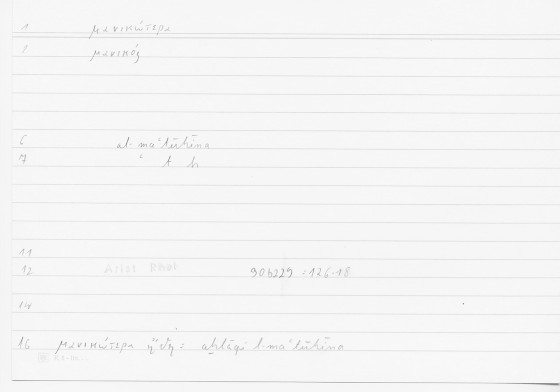 1 μανικώτερα
1 μανικός
6 al-ma'tūhīna
7 " t h
11
12 Arist Rhet 90b29 : 126.18
14
16 μανικώτερα ἤθη : aḫlāqi l-ma'tūhīna